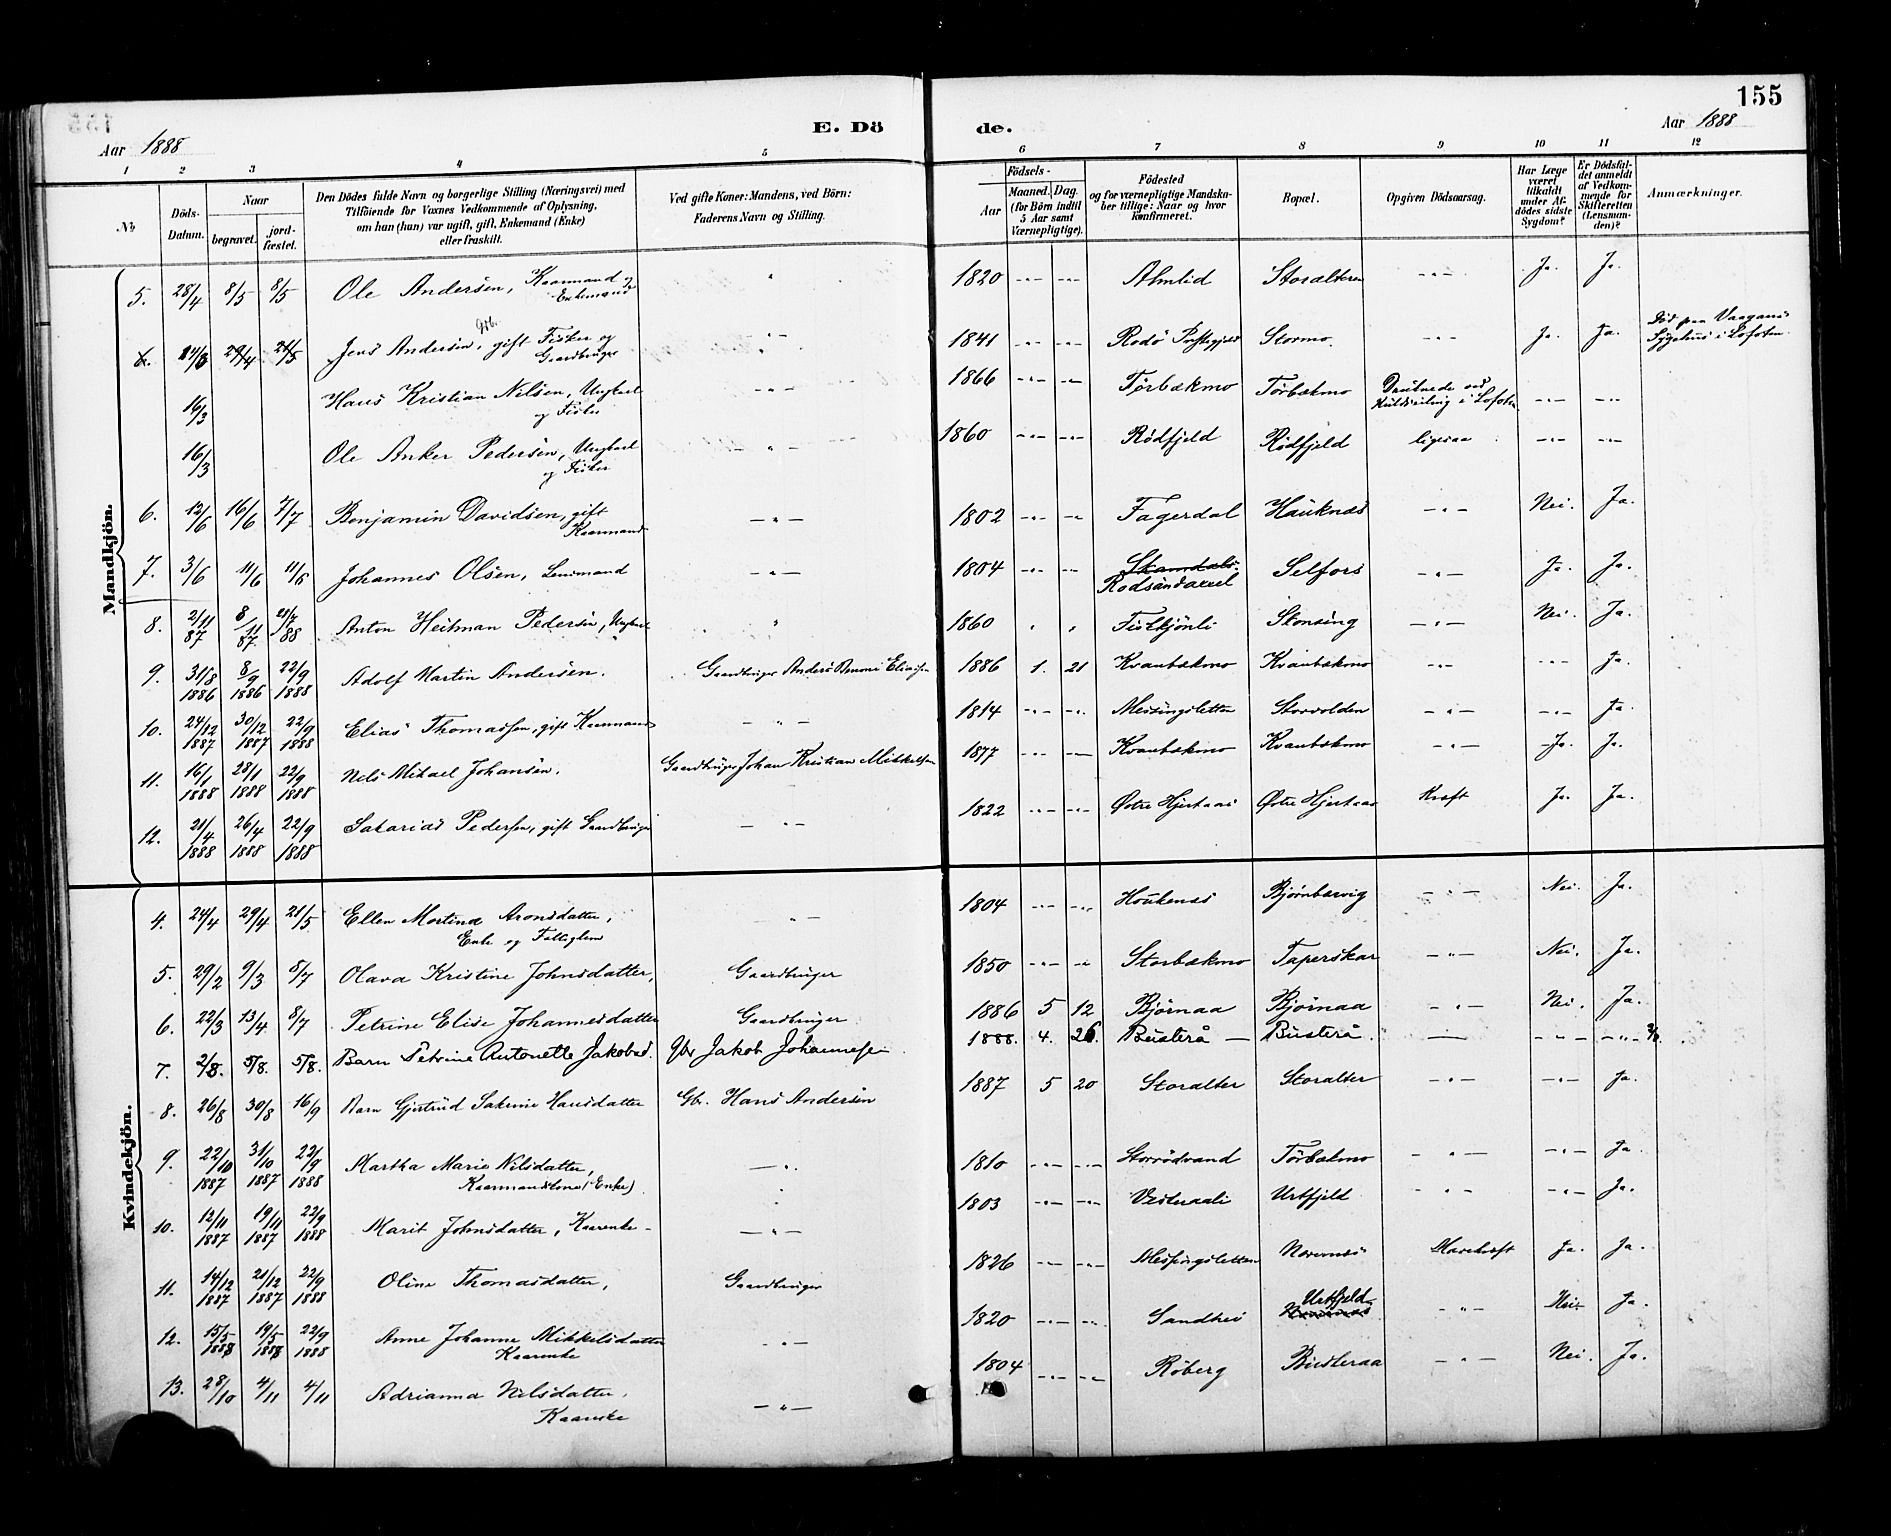 155
Aar 1888
E. Dö de.
Aar 1888
1 2 3 4 5 6 7 8 9 10 11 12
No
Döds-Datum.
Naar
begravet.
jord-fæstet.
Den Dödes fulde Navn og borgerlige Stilling (Næringsvei) med
Tilföiende for Voxnes Vedkommende af Oplysning,
om han (hun) var ugift, gift, Enkemand (Enke)
eller fraskilt.
Ved gifte Koner: Mandens, ved Börn:
Faderens Navn og Stilling.
Födsels-
Aar
Maaned. Dag.
(for Börn indtil
5 Aar samt
Værnepligtige).
Födested
og for værnepligtige Mandska-
ber tillige: Naar og hvor
Konfirmeret.
Bopæl.
Opgiven Dödsaarsag.
Har Læge
været
tilkaldt
under Af-
dödes sidste
Sygdom?
Er Dödsfal-
det anmeldt
af Vedkom-
mende for
Skifteretten
(Lensman-
den)?
Anmærkninger.
Mandkjön.
5. 28/4 8/5 8/5 Ole Andersen, Kaarmand og Enkemand " 1820 -"- -"- Almlid Storalteren -"- Ja. Ja.
6. 11/3 29/4 21/5 Jens Andersen, Gbr. gift Fisker og Gaardbruger -"- 1841 -"- -"- Rødø Præstegjeld Stormo. -"- Ja. Ja. Død paa Vaagans Sygehus i Lofoten
16/3 Hans Kristian Nilsen, Ungkarl og Fisker -"- 1866 -"- -"- Tørbækmo Tørbækmo Druknede ved Kuldseiling i Lofoten -"- -"-
16/3 Ole Anker Pedersen, Ungkarl og Fisker -"- 1860 -"- -"- Rödfjeld Rödfjeld ligesaa -"- -"-
6. 12/6 16/6 7/7 Benjamin Davidsen, gift Kaarmand -"- 1802 -"- -"- Fagerdal Hauknæs -"- Nei. Ja.
7. 3/6 11/6 11/6 Johannes Olsen, Lensmand -"- 1804 -"- -"- Rodsandaxel Selfors -"- Ja. Ja.
8. 2/11 87 8/11 87. 21/7 88 Anton Heitman Pedersen, Ungkarl " 1860 " " Fiskkjönli Stensing -"- Nei. Ja.
9. 31/8 1886 8/9 1886 22/9 1888 Adolf Martin Andersen. Gaardbruger Anders Benoni Eliassen 1886 1. 21 Kvanbækmo Kvanbækmo -"- -"- Ja.
10. 24/12 1887 30/12 1887 22/9 1888 Elias Thomassen, gift Kaarmand -"- 1814 -"- -"- Messingsletten Storvolden -"- -"- Ja.
11. 16/1 1888 28/1 1888 22/9 1888 Nils Mikael Johansen. Gaardbruger Johan Kristian Mikkelsen 1877 -"- -"- Kvanbækmo Kvanbækmo -"- Ja. Ja.
12. 21/4 1888 26/4 1888 22/9 1888 Sakarias Pedersen, gift Gaardbruger -"- 1822 -"- -"- Østre Hjertaas Østre Hjertaas Kræft Ja. Ja.
Kvindekjön.
4. 24/4 29/4 21/5 Ellen Mortina Aronsdatter, Enke og Fattiglem -"- 1804 -"- -"- Houkenæs Bjørnbærvig -"- Nei. Ja.
5. 29/2 9/3 8/7 Olava Kristine Johnsdatter, Gaardbruger 1850 -"- " Storbækmo Taperskar -"- Nei. Ja.
6. 22/3 13/4 8/7 Petrine Elise Johannesdatter Gaardbruger 1886 5 12 Bjørnaa Bjørnaa -"- Nei. Ja.
7. 2/8. 5/8. 5/8. Barn Petrine Antonette Jakobsd. Gbr Jakob Johannesen 1888. 4. 26. Busterå — Busterå. — -"- -"-
8. 26/8 30/8 16/9 Barn Gjertrud Sakrine Hansdatter Gbr. Hans Andersen 1887 5 20 Storalter Storalter -"- -"- Ja.
9. 22/10 1887 31/10 1887 22/9 1888 Martha Marie Nilsdatter, Kaarmandskone (Enke) -"- 1810 -"- -"- Storrödvand Törbækmo -"- -"- Ja.
10. 12/11 1887 19/11 1887 22/9 1888 Marit Johnsdatter, Kaarenke -"- 1803 -"- -"- Vesteraali Urtfjeld -"- -"- Ja.
11. 14/12 1887 21/12 1887 22/9 1888 Oline Thomasdatter, Gaardbruger 1826 -"- -"- Messingsletten Nævernæs Mavekræft Ja. Ja.
12. 15/5 1888 19/5 1888 22/9 1888 Anne Johanne Mikkelsdatter Kaarenke -"- 1820 -"- -"- Sandhei Urtfjeld -"- Nei. Ja.
13. 28/10 4/11 4/11 Adrianna Nilsdatter, Kaarenke -"- 1804 -"- -"- Røberg Busteraa -"- Nei. Ja.